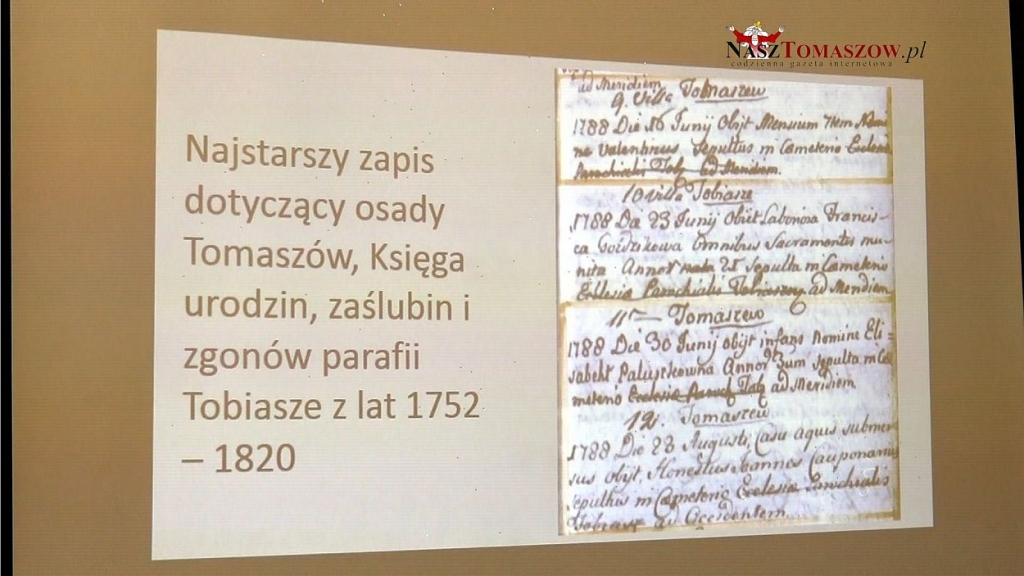 NASZTOMASZOW.pl
codzienna gazeta internetowa
Najstarszy zapis
dotyczący osady
Tomaszów, Księga
urodzin, zaślubin i
zgonów parafii
Tobiasze z lat 1752
– 1820
ad Meridiem
9. Villa Tobmaszew
1788 Die 16 Junij Obijt Mensium
ne Valentinus Sepultus in Cameterio Ecclesia
Parochialis Tob ad Meridiem.
10 Villa Tobiasze
1788 Da 23 Junij Obiit Laboriosa Francis-
ca Omnibus Sacramentis mu-
nita Annor 25 Sepulta in Cameterio
Parochialis ad Meridiem
11 Tomaszew
1788 Die 30 Junij obijt infans Nomine Eli-
sabeth Annor 3um Sepulta in Ca-
meterio Ecclesia Paroch Tob ad Meridiem
12. Tomaszew
1788 Die 23 Augusti, Casu aquis submer
sus obijt, Honestus Joannes Cauponarius
Sepultus in Cameterio Ecclesia Parochialis
Tobiasz ad Occidentem.